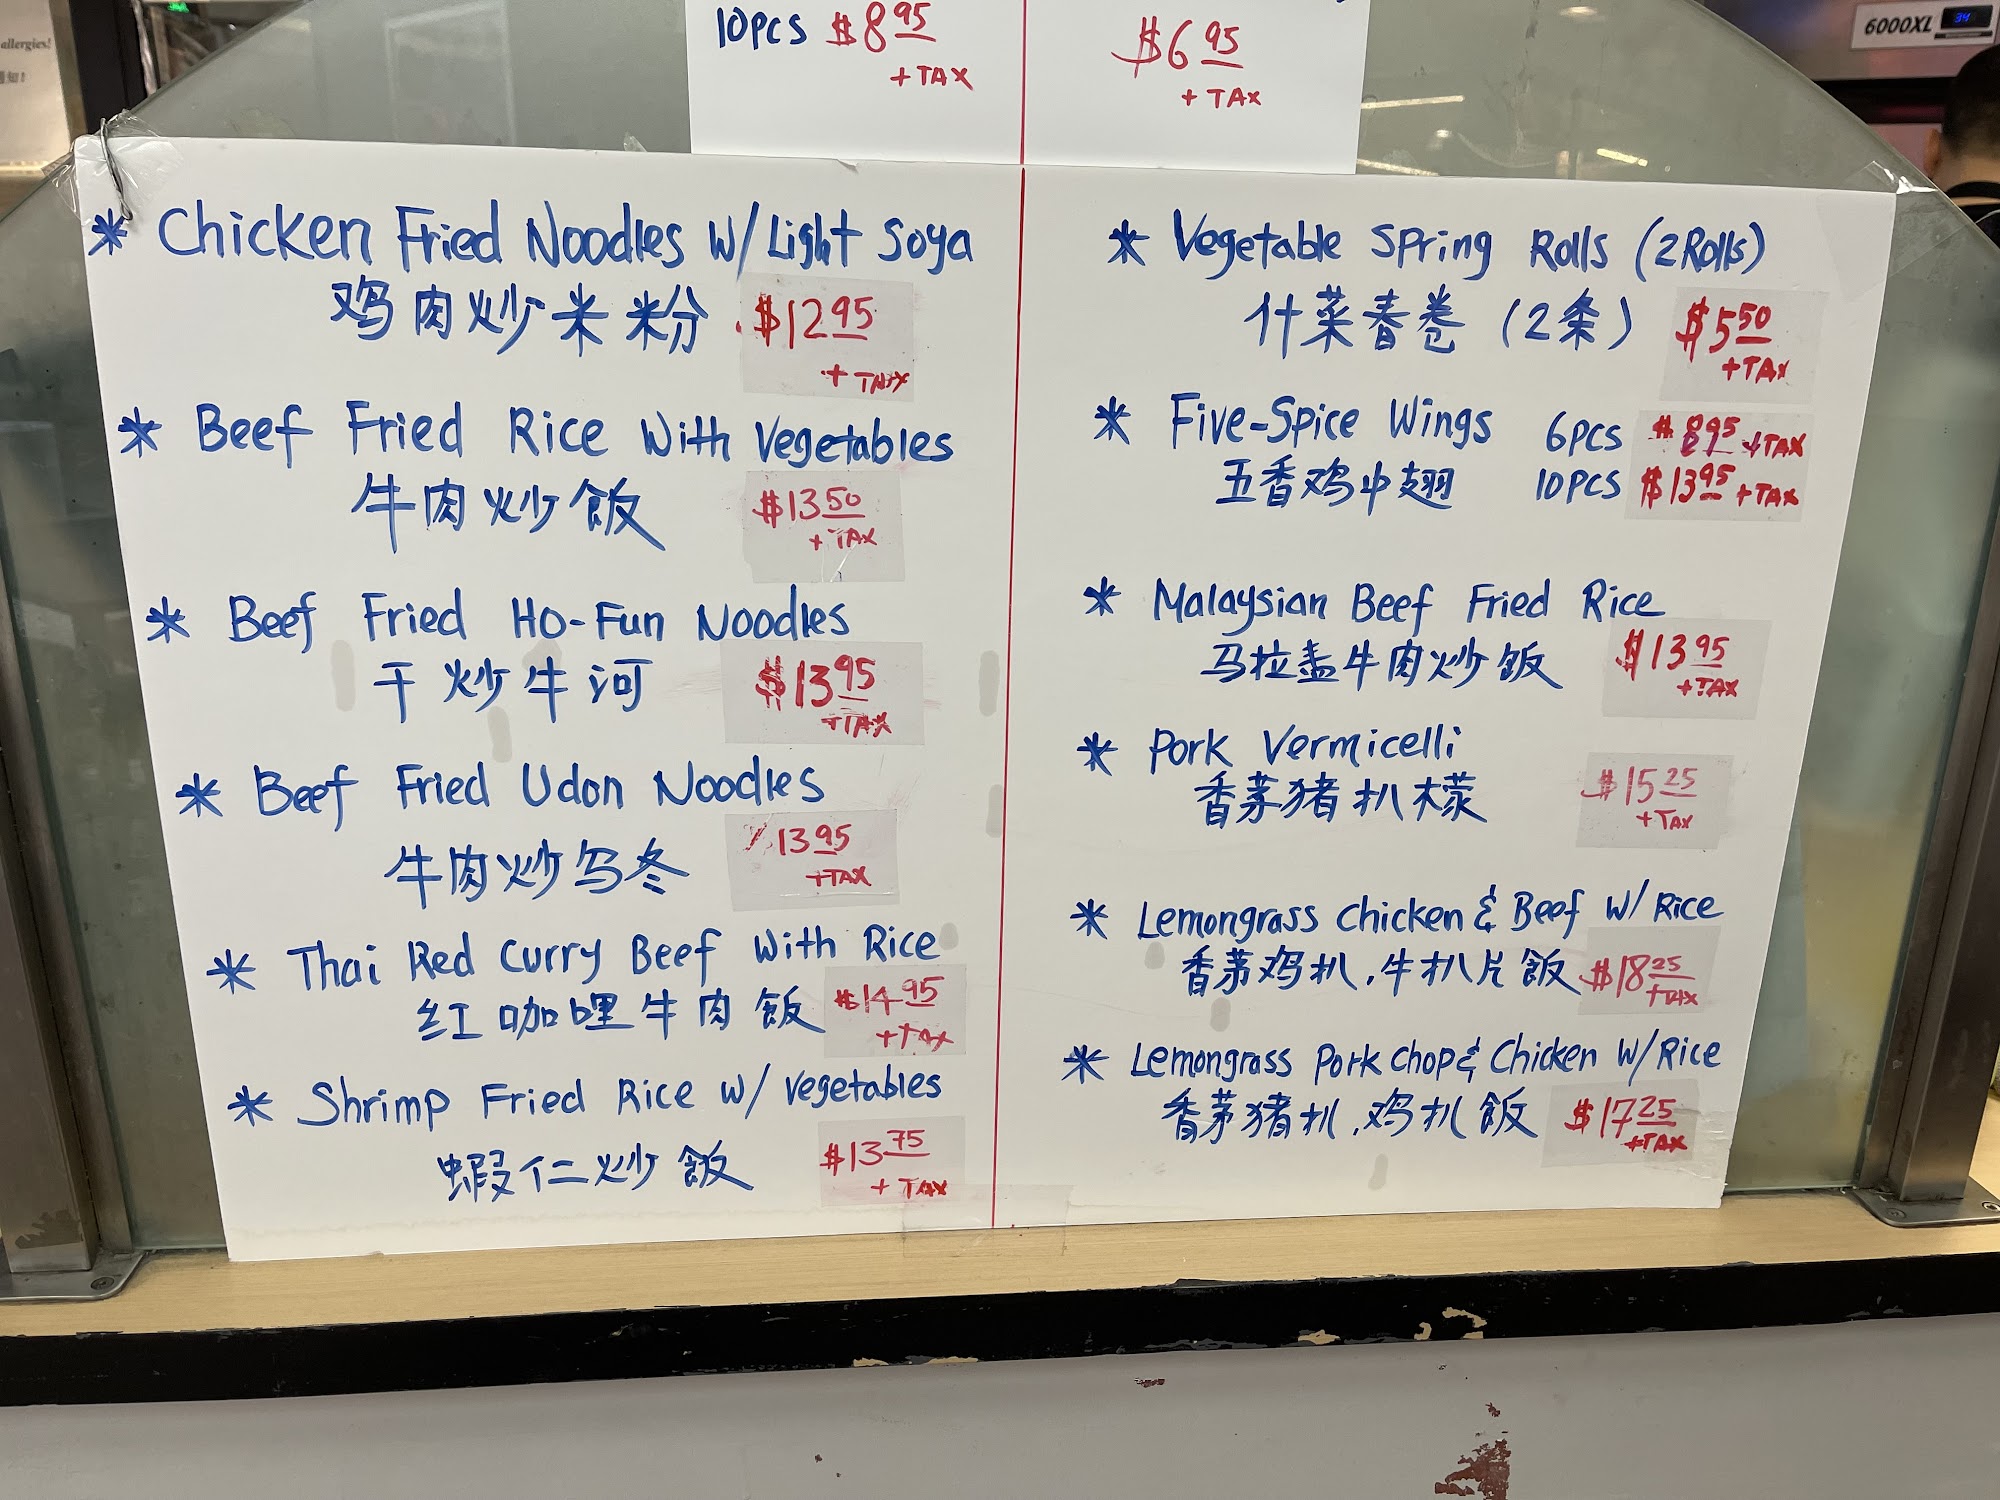 allergies!
6000XL
34
10PCS $8.95
+ TAX
$6.95
+ TAX
* Chicken Fried Noodles W/Light Soya
鸡肉炒米粉 $12.95
+ TAX
* Beef Fried Rice With Vegetables
牛肉炒飯 $13.50
+ TAX
* Beef Fried Ho-Fun Noodles
干炒牛河 $13.95
+TAX
* Beef Fried Udon Noodles
牛肉炒乌冬 13.95
+TAX
* Thai Red Curry Beef With Rice
红咖哩牛肉飯 $14.95
+TAX
* Shrimp Fried Rice W/ Vegetables
蝦仁炒飯 $13.75
+ TAX
* Vegetable Spring Rolls (2Rolls)
什菜春卷 (2条) $5.50
+TAX
* Five-Spice Wings 6PCS $8.95 +TAX
五香鸡中翅 10PCS $13.95 +TAX
* Malaysian Beef Fried Rice
马拉盏牛肉炒饭 $13.95
+TAX
* Pork Vermicelli
香茅猪扒檬 $15.25
+TAX
* Lemongrass Chicken & Beef W/Rice
香茅鸡扒,牛扒片飯 $18.25
+TAX
* Lemongrass Pork Chop & Chicken W/Rice
香茅猪扒,鸡扒飯 $17.25
+TAX